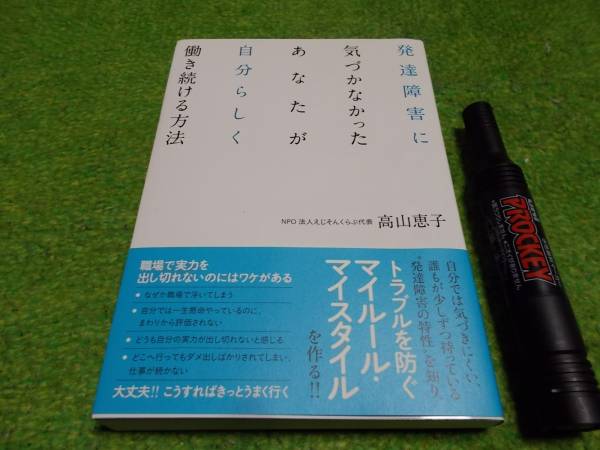 発達障害に
気づかなかった
あなたが
自分らしく
働き続ける方法
NPO 法人えじそんくらぶ代表 高山恵子
自分では気づきにくい、
誰もが少しずつ持っている
"発達障害の特性"を知り、
トラブルを防ぐ
マイルール・
マイスタイル
を作る!!
職場で実力を
出し切れないのにはワケがある
● なぜか職場で浮いてしまう
● 自分では一生懸命やっているのに、
まわりから評価されない
● どうも自分の実力が出し切れないと感じる
● どこへ行ってもダメ出しばかりされてしまい、
仕事が続かない
大丈夫!! こうすればきっとうまく行く
PROCKEY